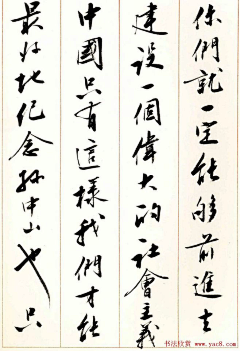 你們就一定能够前進去
建设一個偉大的社會主義
中國只有這樣我們才能
最好地纪念孙中山也只
书法欣赏
www.yac8.com